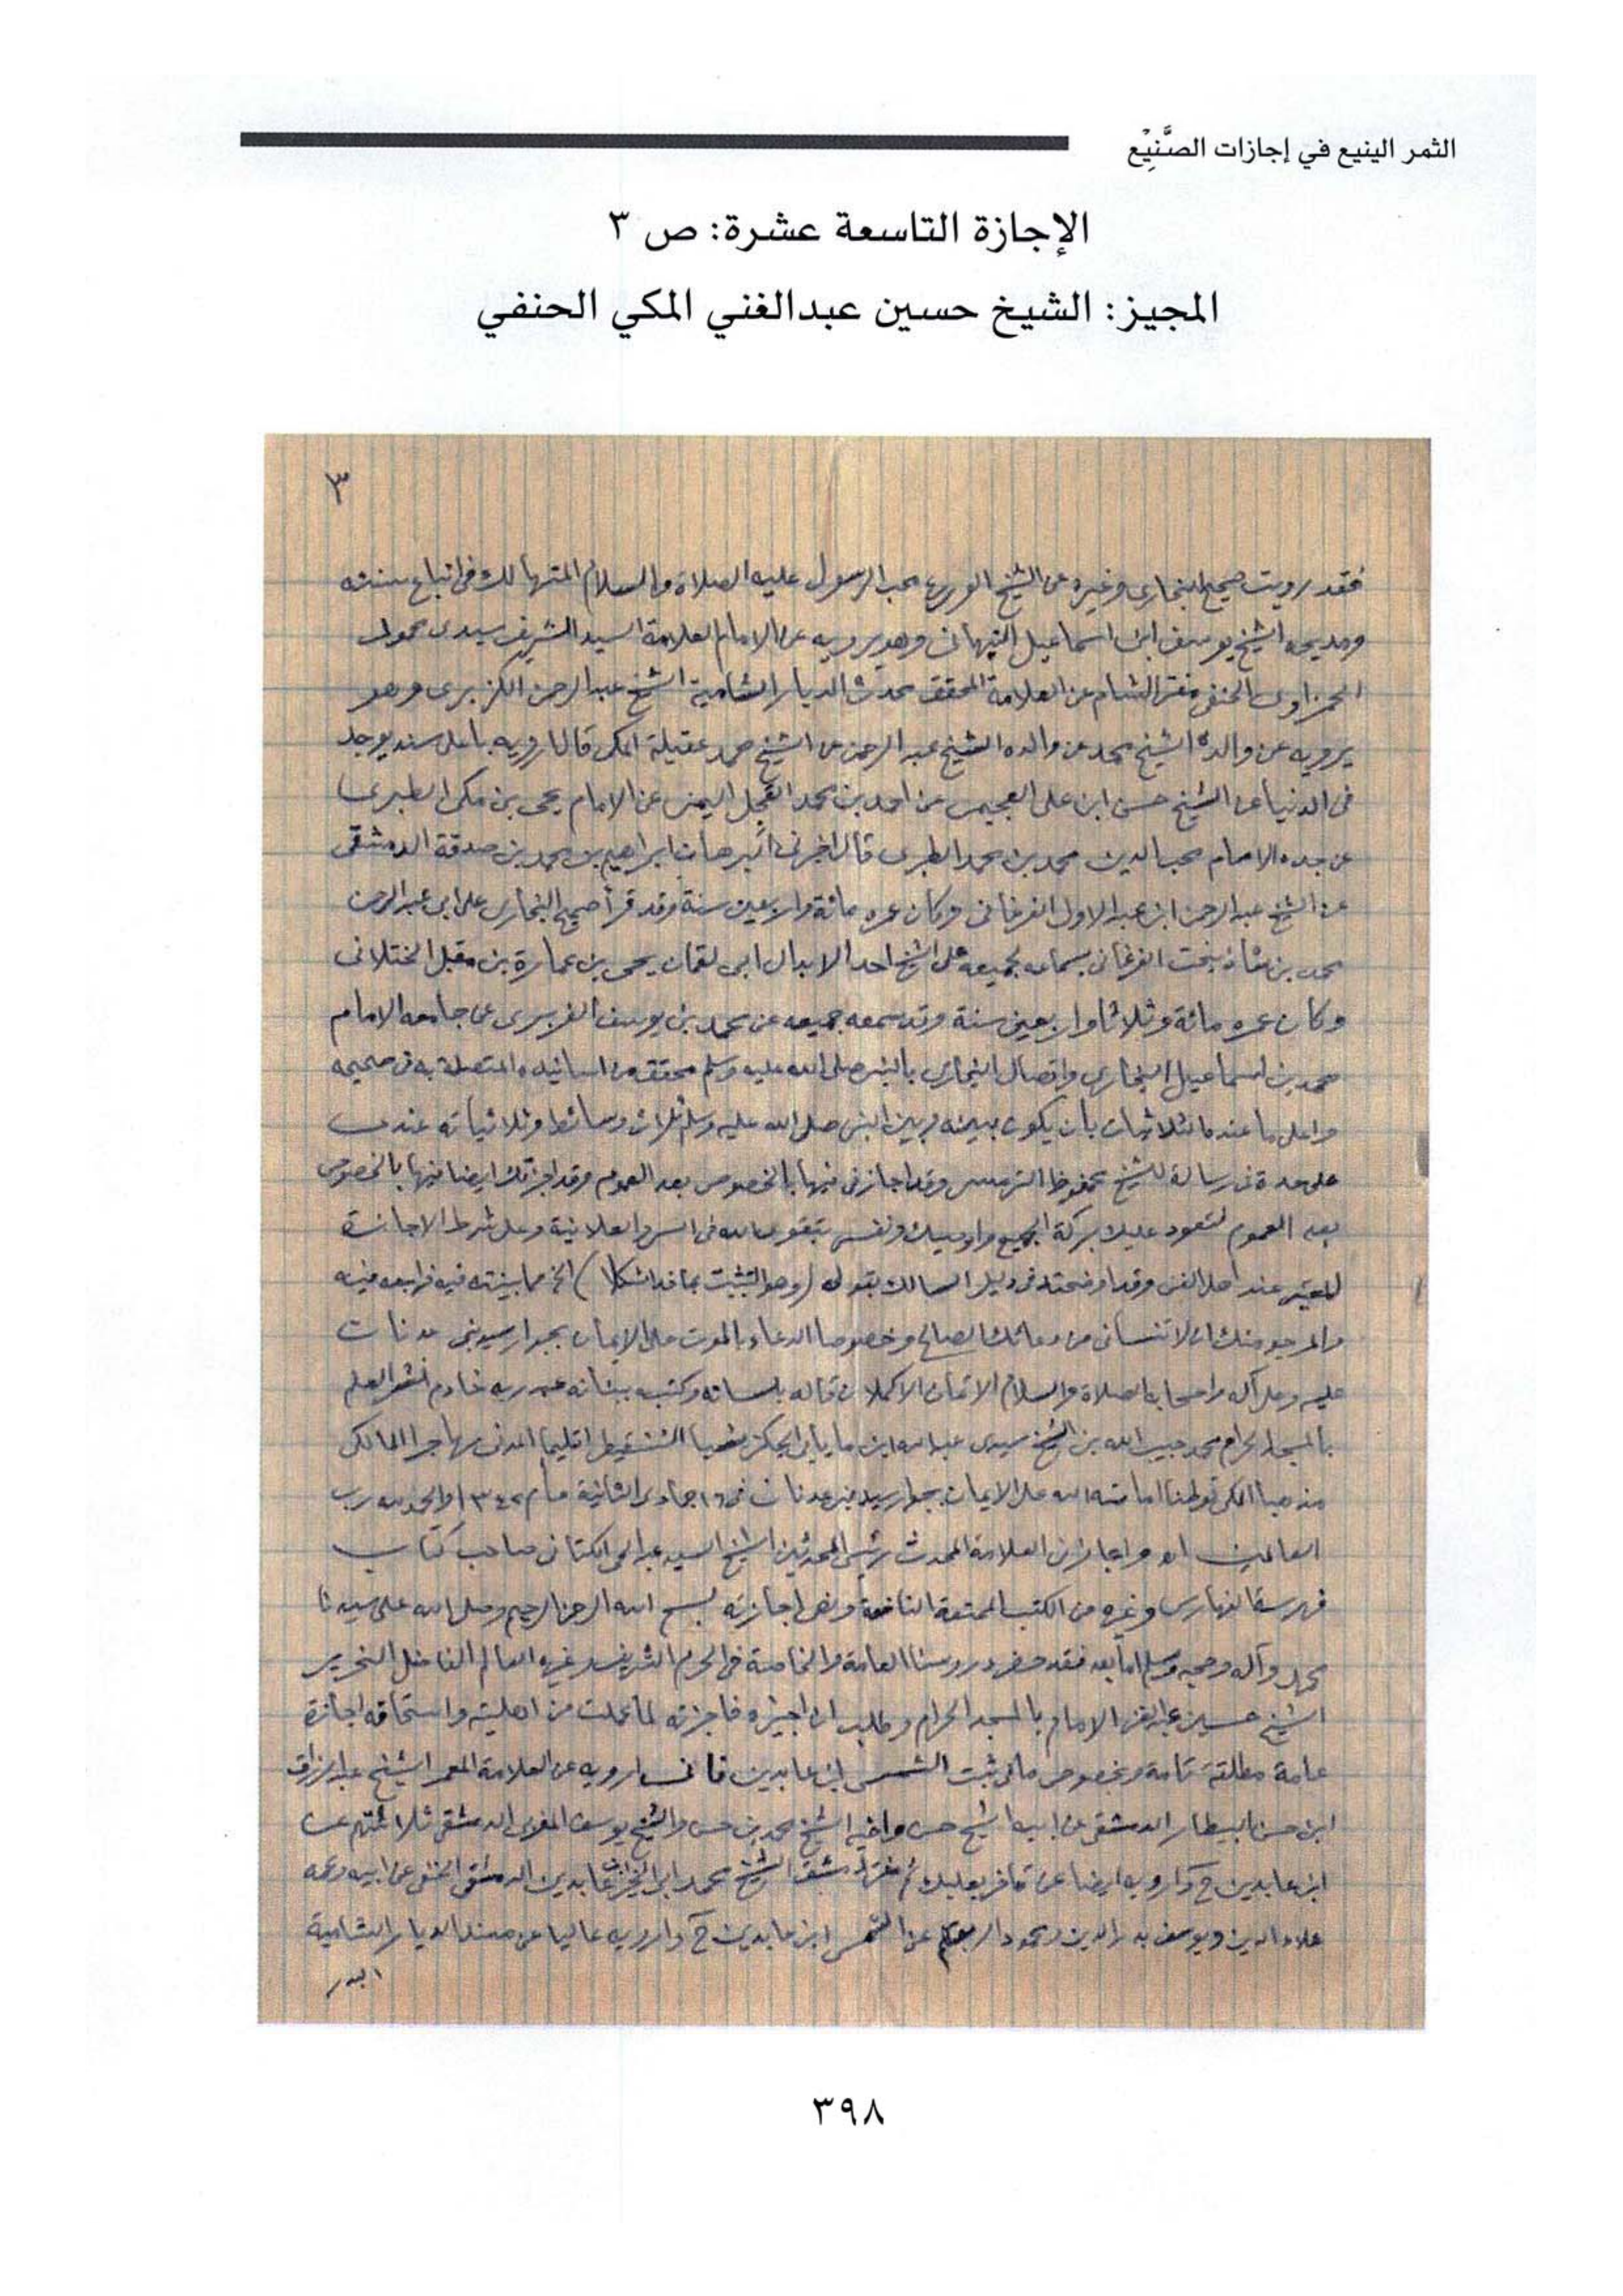 الثمر الينيع في إجازات الصَّنِيْع
الإجازة التاسعة عشرة: ص ٣
المجيز: الشيخ حسين عبدالغني المكي الحنفي
٣
فقد رويت صحيح البخاري وغيره عن الشيخ الورع محب الرسول عليه الصلاة والسلام المتهالك في اتباع سنته
ومديحه الشيخ يوسف ابن اسماعيل النبهاني وهو يرويه عن الامام العلامة السيد الشريف سيدى محمود
الحمزاوى الحنفي مفتى الشام عن العلامة المحقق محدث الديار الشامية الشيخ عبد الرحمن الكزبرى وهو
يرويه عن والده الشيخ محمد عن والده الشيخ عبد الرحمن عن الشيخ محمد عقيلة المكى قال ارويه باعلى سند يوجد
فى الدنيا عن الشيخ حسن ابن على العجيمى عن احمد بن محمد العجل اليمنى عن الامام يحى بن مكى الطبرى
عن جده الامام محب الدين محمد بن محمد الطبرى قال اخبرنى البرهان ابراهيم بن محمد بن صدقة الدمشقى
عن الشيخ عبد الرحمن ابن عبد الاول الفرغانى وكان عمره مائة واربعين سنة وقد قرأ صحيح البخارى على ابى عبد الرحمن
محمد بن شاذ بخت الفرغانى بسماعه لجميعه على الشيخ احد الابدال ابى لقمان يحيى بن عمارة بن مقبل الختلانى
وكان عمره مائة وثلاثا واربعين سنة وقد سمعه جميعه عن محمد بن يوسف الفربرى عن جامعه الامام
محمد بن اسماعيل البخارى واتصال البخارى بالنبى صلى الله عليه وسلم محقق من اسانيده المتصلة به فى صحيحه
واعلى ما عنده الثلاثيات بأن يكون بينه وبين النبى صلى الله عليه وسلم ثلاث وسائط وثلاثياته عندى
على حدة فى رسالة للشيخ محفوظ الترمسى وقد اجازنى فيها بالخصوص بعد العموم وقد اجزتك ايضا فيها بالخصوص
بعد العموم لتعود عليك بركة الجميع واوصيك ونفسى بتقوى الله فى السر والعلانية وعلى شرط الاجازة
المعتبر عند اهل الفن وقد اوضحته فى دليل السالك بقولى (وهو التثبت بما قد اشكلا) الخ مما بينته فيه فراجعه فيه
والمرجو منك ان لا تنسانى من دعائك الصالح وخصوصا الدعاء بالموت على الايمان بجوار سيد بنى عدنان
عليه وعلى آله واصحابه الصلاة والسلام الاتمان الاكملان قاله بلسانه وكتبه ببنانه عبد ربه خادم نشر العلم
بالمسجد الحرام محمد حبيب الله بن الشيخ سيدى عبد الله ابن ما يأبى الجكنى نسبا الشنقيطى اقليما المدنى مهاجرا المالكى
مذهبا المكى توطنا اماته الله على الايمان بجوار سيد بنى عدنان فى ١٦ جمادى الثانية عام ١٣٤٢ والحمد لله رب
العالمين اهـ واجازنى العلامة المحدث رئيس المحدثين الشيخ السيد عبد الحى الكتانى صاحب كتاب
فهرس الفهارس وغيره من الكتب الممتعة النافعة ونص اجازته بسم الله الرحمن الرحيم وصلى الله على سيدنا
محمد وآله وصحبه وسلم اما بعد فقد حضر دروسنا العامة والخاصة فى الحرم الشريف وغيره العالم الفاضل النحرير
الشيخ حسين عبد الغنى الامام بالمسجد الحرام وطلب ان اجيزه فاجزته لما علمت من اهليته واستحقاقه اجازة
عامة مطلقة تامة وبخصوص مافى ثبت الشمس ابن عابدين فانى ارويه عن العلامة المعمر الشيخ عبد الرزاق
ابن حسن البيطار الدمشقى عن ابيه الشيخ حسن واخيه الشيخ محمد بن حسن والشيخ يوسف المغربى الدمشقى ثلاثتهم عن
ابن عابدين ح وارويه ايضا عن قاضى بعلبك ثم مفتى دمشق الشيخ محمد ابى الخير عابدين الدمشقى الحنفى عن ابيه وعمه
علاء الدين ويوسف بدر الدين ومحمود عن الشمس ابن عابدين ح وارويه عاليا عن مسند الديار الشامية
البدر
٣٩٨